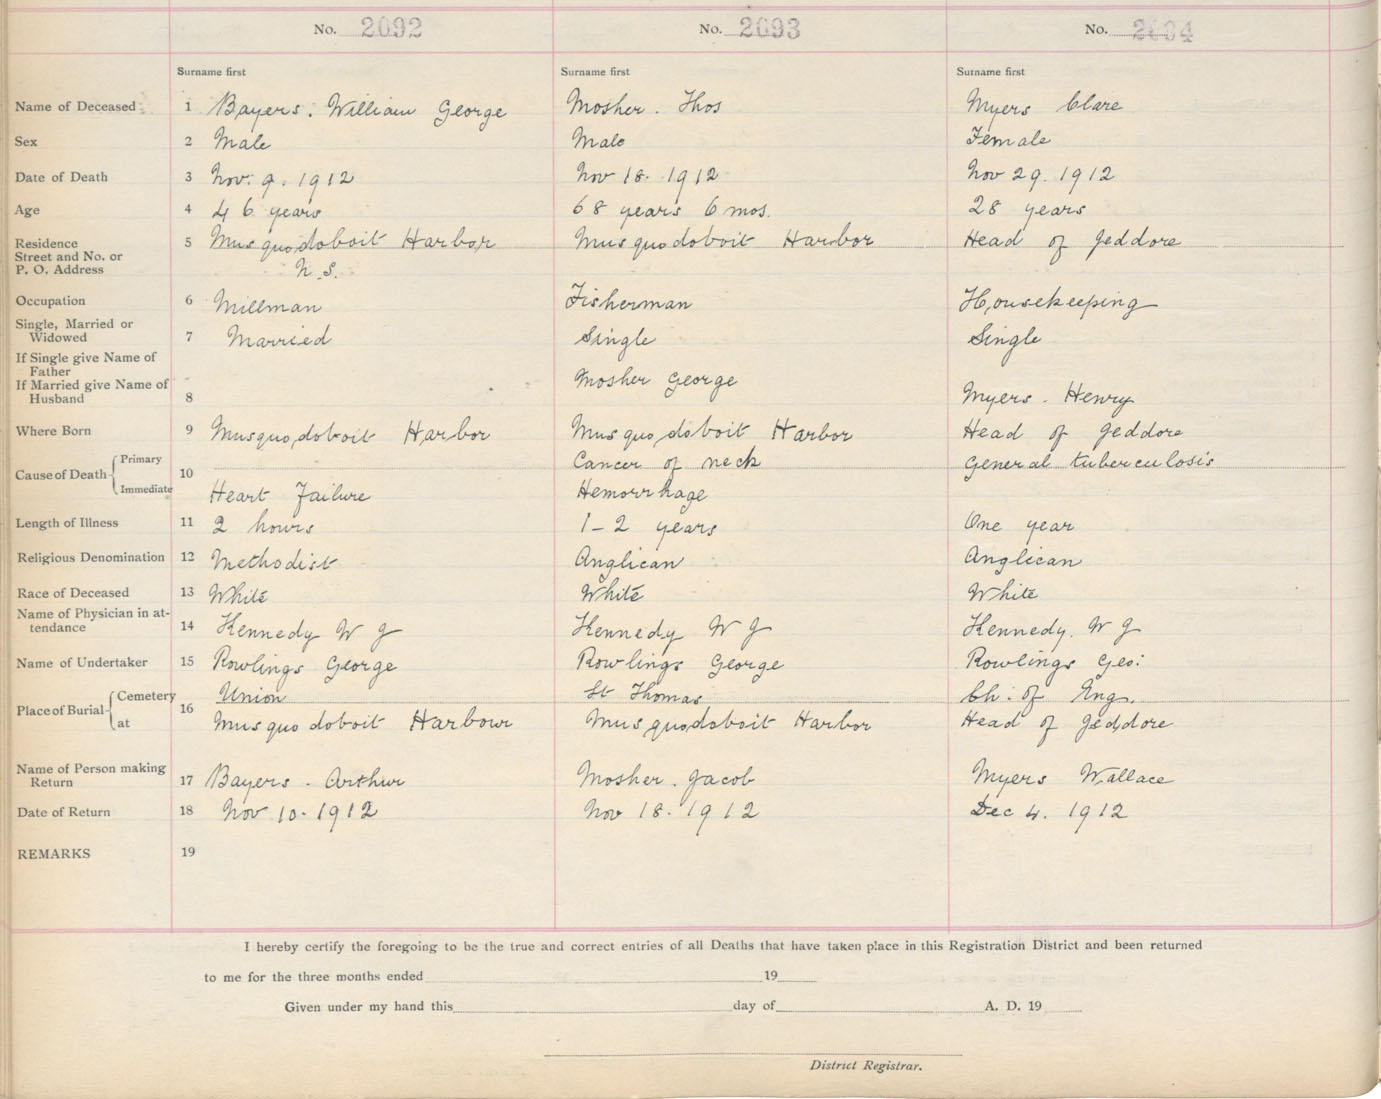 No. 2092 No. 2093 No. 2094
Surname first Surname first Surname first
Name of Deceased 1 Bayers. William George Mosher. Thos Myers Clare
Sex 2 Male Male Female
Date of Death 3 Nov. 9. 1912 Nov 18. 1912 Nov 29. 1912
Age 4 46 years 68 years 6 mos. 28 years
Residence 5 Musquodoboit Harbor Musquodoboit Harbor Head of Jeddore
Street and No. or
P. O. Address N.S.
Occupation 6 Millman Fisherman Housekeeping
Single, Married or
Widowed 7 Married Single Single
If Single give Name of
Father
If Married give Name of Mosher George
Husband 8 Myers. Henry
Where Born 9 Musquodoboit Harbor Musquodoboit Harbor Head of Jeddore
Primary Cancer of neck General tuberculosis
Cause of Death 10
Immediate Heart Failure Hemorrhage
Length of Illness 11 2 hours 1-2 years One year
Religious Denomination 12 Methodist Anglican Anglican
Race of Deceased 13 White White White
Name of Physician in at-
tendance 14 Kennedy W J Kennedy W J Kennedy. W J
Name of Undertaker 15 Rowlings George Rowlings George Rowlings Geo:
Cemetery Union St Thomas Ch. of Eng.
Place of Burial 16
at Musquodoboit Harbour Musquodoboit Harbor Head of Jeddore
Name of Person making
Return 17 Bayers. Arthur Mosher. Jacob Myers Wallace
Date of Return 18 Nov 10. 1912 Nov 18. 1912 Dec 4. 1912
REMARKS 19
I hereby certify the foregoing to be the true and correct entries of all Deaths that have taken place in this Registration District and been returned
to me for the three months ended 19
Given under my hand this day of A. D. 19
District Registrar.